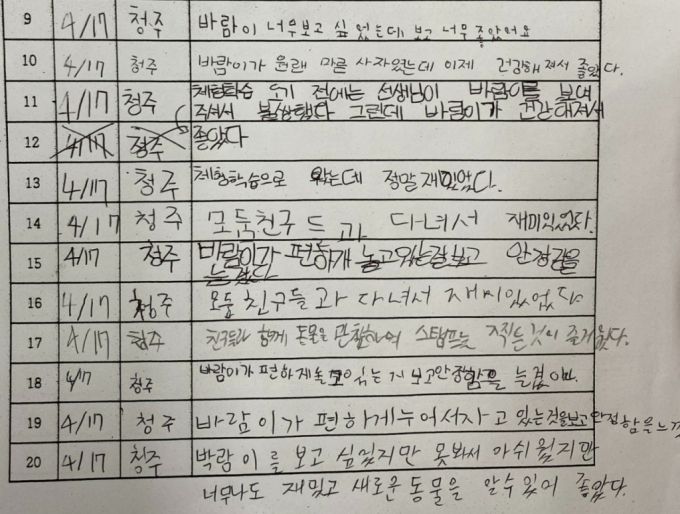 9 4/17 청주 바람이 너무보고 싶었는데 보고 너무 좋았어요
10 4/17 청주 바람이가 원래 마른 사자였는데 이제 건강해져서 좋았다.
11 4/17 청주 체험학습 오기 전에는 선생님이 바람이를 보여
주셔서 불쌍했다 그런데 바람이가 건강해져서
12 4/17 청주 좋았다
13 4/17 청주 체험학습으로 왔는데 정말재밌었다.
14 4/17 청주 모둠친구드과 다녀서 재미있었다.
15 4/17 청주 바람이가 편하게 놀고있는걸보고 안정감을
느꼈다
16 4/17 청주 모둠친구들과 다녀서 재미있었다
17 4/17 청주 친구들과 함께 동물을 관찰하여 스탬프를 찍는것이 즐거웠다.
18 4/17 청주 바람이가 편하게 보고안정함을 늘겼
19 4/17 청주 바람이가 편하게누어서자고 있는것을보고안정함을느껴
20 4/17 청주 박람이를 보고 싶었지만 못봐서 아쉬웠지만
너무나도 재밌고 새로운 동물을 알수있어 좋았다.